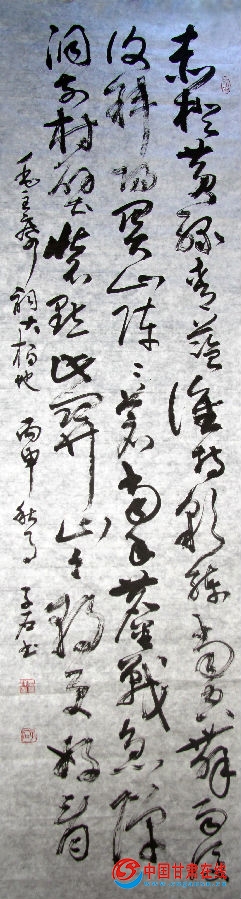 赤橙黄绿青蓝谁持彩练当空舞雨后
复斜阳关山阵々苍当年鏖战急弹
洞前村壁装点此关山今朝更好看
毛主席词大柏地 丙申秋
书
中国甘肃在线